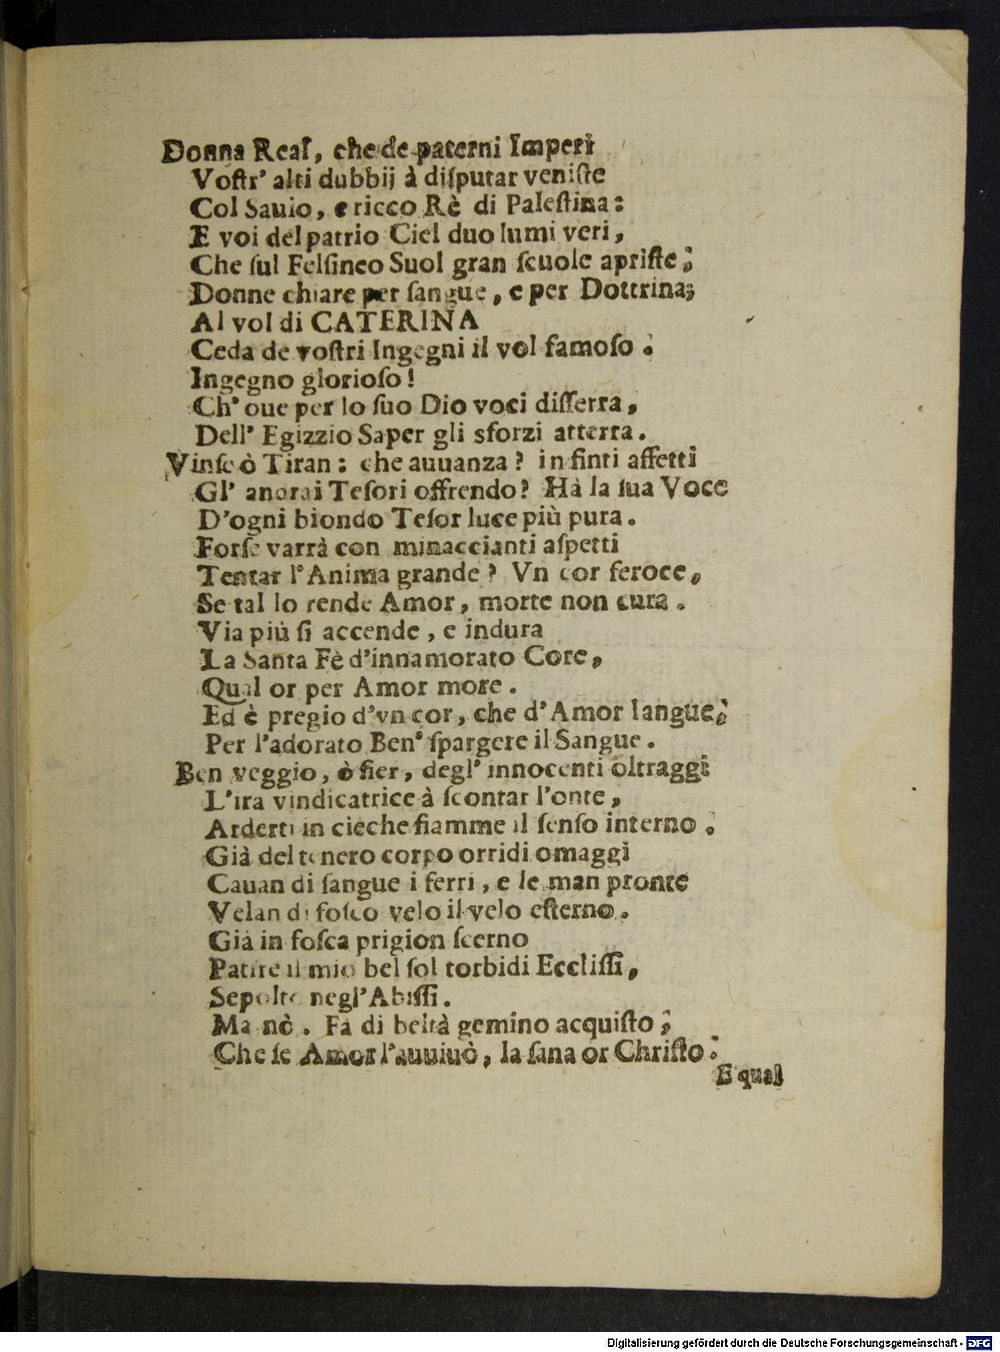 Donna Real, che de paterni Imperi
Voſtr' alti dubbij à diſputar veniſte
Col Sauio, e ricco Rè di Paleſtina:
E voi del patrio Ciel duo lumi veri,
Che ſul Felſineo Suol gran ſcuole apriſte;
Donne chiare per ſangue, e per Dottrina;
Al vol di CATERINA
Ceda de voſtri Ingegni il vol famoſo.
Ingegno glorioſo!
Ch' oue per lo ſuo Dio voci diſſerra,
Dell' Egizzio Saper gli sforzi atterra.
Vinſe ò Tiran: che auuanza? in finti affetti
Gl' andrai Teſori offrendo? Hà la ſua Voce
D'ogni biondo Teſor luce più pura.
Forſe varrà con minaccianti aſpetti
Tentar l'Anima grande? Vn cor feroce,
Se tal lo rende Amor, morte non cura.
Via più ſi accende, e indura
La Santa Fè d'innamorato Core,
Qual or per Amor more.
Ed è pregio d'vn cor, che d'Amor langue;
Per l'adorato Ben' ſpargere il Sangue.
Ben veggio, ò fier, degl' innocenti oltraggi
L'ira vindicatrice à ſcontar l'onte,
Arderti in cieche fiamme il ſenſo interno.
Già del tenero corpo orridi omaggi
Cauan di ſangue i ferri, e le man pronte
Velan di foſco velo il velo eſterno.
Già in foſca prigion ſcerno
Patire il mio bel ſol torbidi Eccliſſi,
Sepolto negl'Abiſſi.
Ma nò. Fà di beltà gemino acquiſto;
Che ſe Amor l'auuiuò, la ſana or Chriſto.
E qual
Digitalisierung gefördert durch die Deutsche Forschungsgemeinschaft - DFG